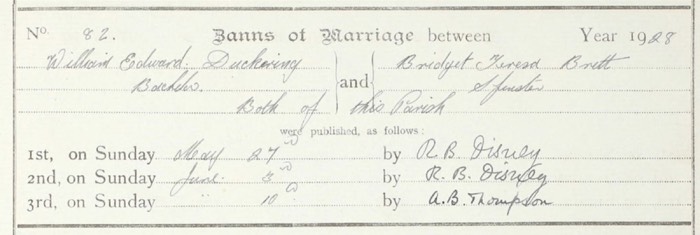 No. 82. Banns of Marriage between Year 1928
William Edward Duckering and Bridget Teresa Brett
Bachelor. Spinster
Both of this Parish
were published, as follows:
1st, on Sunday May 27 by R. B. Disney
2nd, on Sunday June 3 by R. B. Disney
3rd, on Sunday 10 by A. B. Thompson